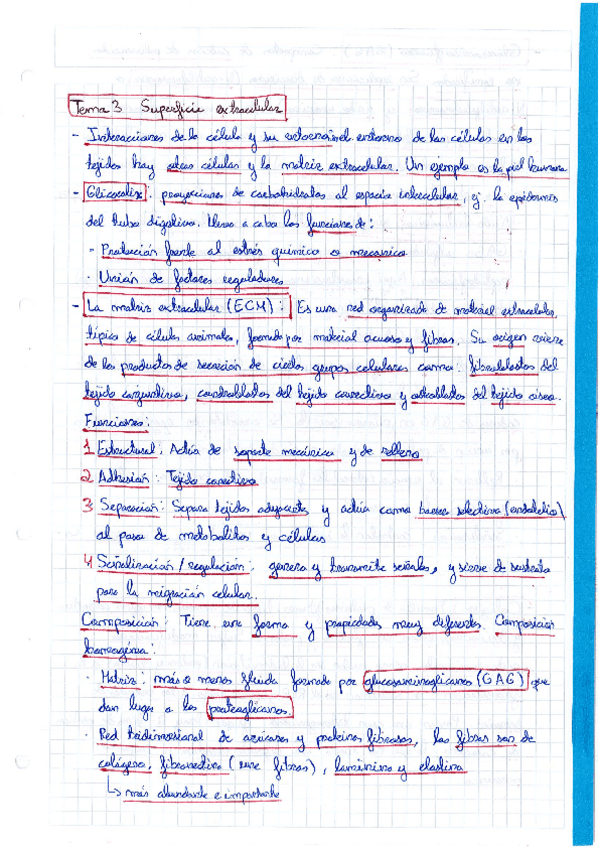 Tema 3 Superficie extracelular
- Interacciones de la célula y su entorno: el entorno de las células en los
tejidos hay otras células y la matriz extracelular. Un ejemplo es la piel humana
- Glicocalix: proyecciones de carbohidratos al espacio intercelular, ej. la epidermis
del tubo digestivo. Lleva a cabo las funciones de:
- Protección frente al estrés químico o mecánico
- Unión de factores reguladores
- La matriz extracelular (ECM): Es una red organizada de material extracelular
típica de células animales, formada por material acuoso y fibras. Su origen viene
de los productos de secreción de ciertos grupos celulares como: fibroblastos del
tejido conjuntivo, condroblastos del tejido conectivo y osteoblastos del tejido óseo.
Funciones:
1 Estructural: Actúa de soporte mecánico y de relleno
2 Adhesión: Tejido conectivo
3 Separación: Separa tejidos adyacentes y actúa como barrera selectiva (endotelio)
al paso de metabolitos y células
4 Señalización / regulación: genera y transmite señales, y sirve de sustrato
para la migración celular.
Composición: Tiene una forma y propiedades muy diferentes. Composición
homogénea:
· Matriz: más o menos fluida formada por glucosaminoglicanos (GAG) que
dan lugar a los proteoglicanos.
· Red tridimensional de azúcares y proteínas fibrosas, las fibras son de
colágeno, fibronectina (une fibras), laminina y elastina
↳ más abundante e importante